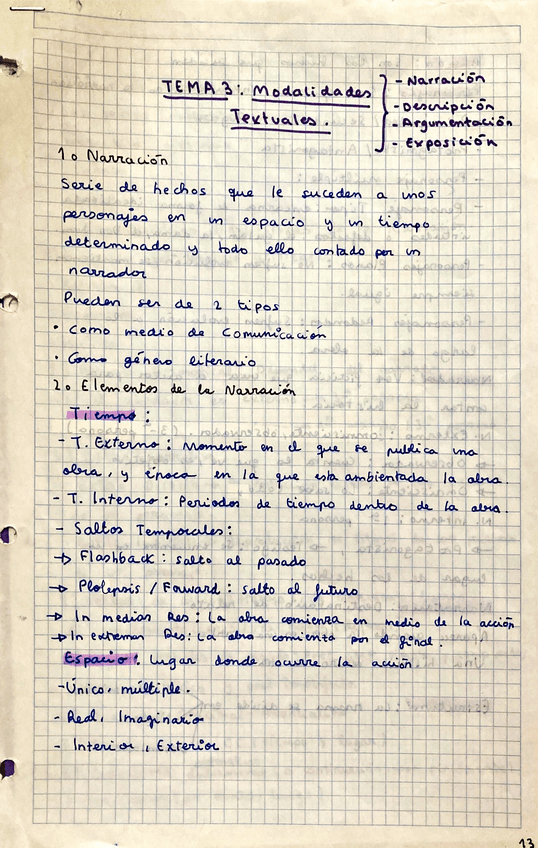 TEMA 3: Modalidades
Textuales.
- Narración
- Descripción
- Argumentación
- Exposición
1o Narración
Serie de hechos que le suceden a unos
personajes en un espacio y un tiempo
determinado y todo ello contado por un
narrador
Pueden ser de 2 tipos
• Como medio de Comunicación
• Como género literario
2o Elementos de la Narración
Tiempo:
- T. Externo: Momento en el que se publica una
obra, y época en la que esta ambientada la obra.
- T. Interno: Periodos de tiempo dentro de la obra.
- Saltos Temporales:
→ Flashback: salto al pasado
→ Plolepsis / Forward: salto al futuro
→ In medias Res: La obra comienza en medio de la acción
→ In extremas Res: La obra comienza por el final.
Espacio: Lugar donde ocurre la acción.
- Único, múltiple.
- Real, Imaginario
- Interior, Exterior
13